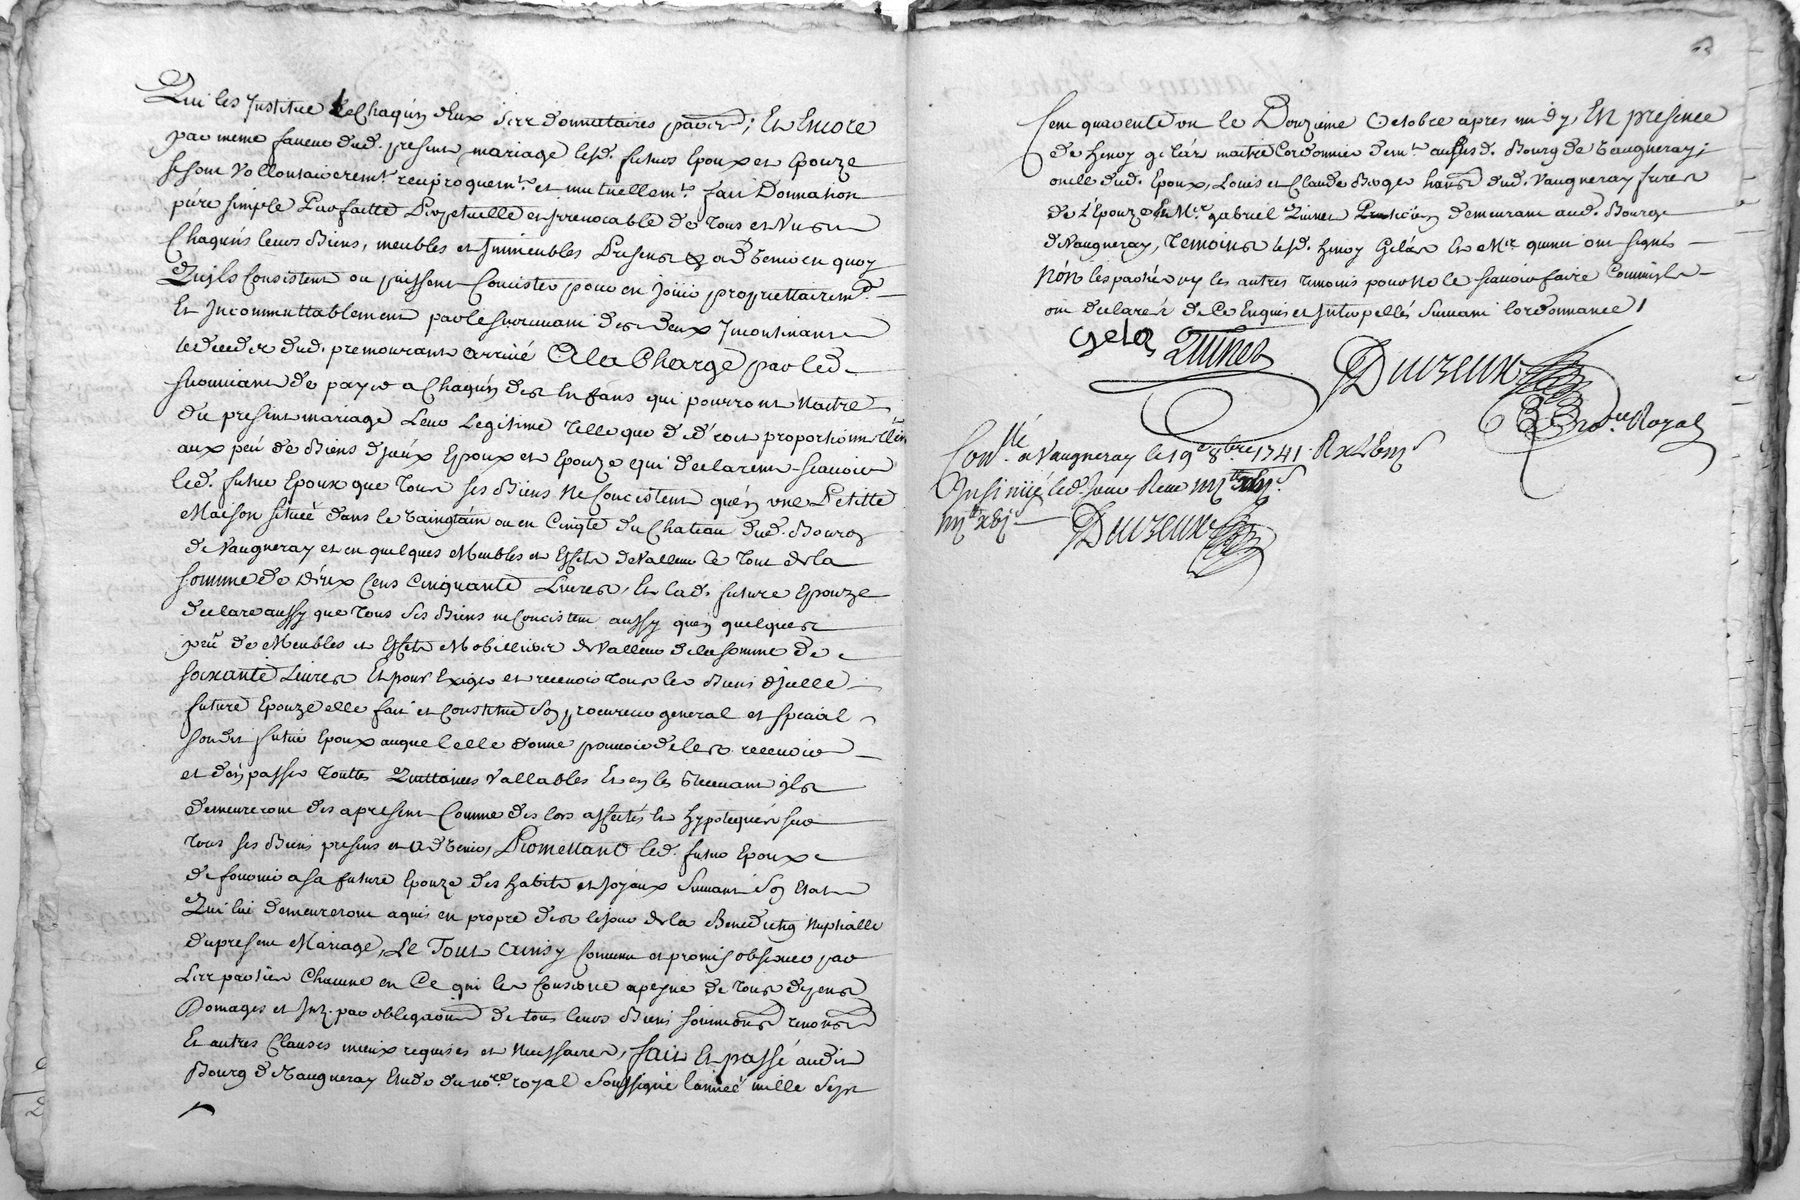 Qui les Institue & Chaqún deux ses donnataires ; Et Encore
par meme faveur dud. present mariage lesd. futurs Epoux et Epouze
se sont Vollontairemt. reciproquemt. et mutuellemt. fait Donnation
púre simple Parfaitte Perpetuelle et Irrevocable de Tous et Uns
Chaqúns leurs Biens, meubles et Immeubles Presents & advenir en quoy
Quils Consistent ou puissent Concister pour en Joüir proprietairemt.
Et Incommuttablement par le survivant des deux Incontinant
le deceds dud. premourant arrivé A la Charge par led.
survivant de payer a Chaqún des Enfans qui pourront Naitre
du present mariage Leur Legitime Telle que de droit proportionnellemt
aux peú de Biens diceúx Epoux et Epouze qui declarent scavoir
led. futur Epoux que Tous ses Biens ne Concistent quén une Petitte
Maison sitúéé dans le ou en Cinqte du Chateau dud. Bourg
de Vaugneray et en quelques Meubles et Effets de Valleur le Tout de la
somme de Deux Cens Cinquante Livres, Et lad. future Epouze
declare aussy que Tous ses Biens ne Concistent aussy quén quelques
peú de Meubles et Effets Mobilliers de Valleur de la somme de
soixante Livres Et pour Exiger et recevoir Tous les Biens dicelle
future Epouze elle fait et Constitue son procureur general et special
sondit futur Epoux auquel elle donne pouvoir de les recevoir
et dén passer Touttes Quittances Vallables Et en les Recevant ils
demeureront des apresent Comme des lors affectés et hypotequés sur
Tous ses Biens presens et advenir, Promettant led. futur Epoux
de fournir a sa future Epouze des habits et Joyaux Suivant son Etat
Qui lui demeureront aquis en propre des le jour de la Benediction Nuptialle
du present Mariage, Le Tout ainsy Convenu et promis observer par
les parties Chacune en Ce qui les Conserne apeyne de Tous depens
Domages et Int. par obligaôn de tous leurs Biens soumissôns renonsôns
Et autres Clauses mieux requises et Necessaires, fait Et passé audit
Bourg de Vaugneray Etude du nore. royal Soussigné lanneé mille Sept
Cent quarente un le Douzieme Octobre apres midy, En presence
de henry gelás maitre Cordonnier demt. aussusd. Bourg de Vaugneray,
oncle dud. Epoux, Louis et Claude Bوger hants dud. Vaugneray freres
de l'Epouze Et Mr. gabriel Quinet Praticien demeurant aud. Bourg
de Vaugneray, Temoins lesd. henry Gelás Et Mr. quinet ont signés
nón les parties ny les autres temoins pour ne le scavoir faire Comme ils
ont declarés de Ce Enquis et Interpellés Suivant lordonnance /
Gelas Quinet Duvzeux
no.re Royal
Conlle. à Vaugneray le 19e 8bre 1741
Insinüé led. jour Recu
Duvzeux